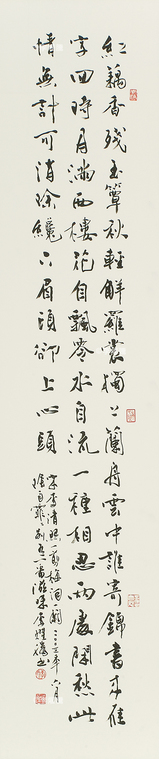 紅藕香殘玉簟秋輕解羅裳獨上蘭舟雲中誰寄錦書來雁
字回時月滿西樓花自飄零水自流一種相思兩處閑愁此
情無計可消除纔下眉頭卻上心頭
宋李清照一剪梅詞六月